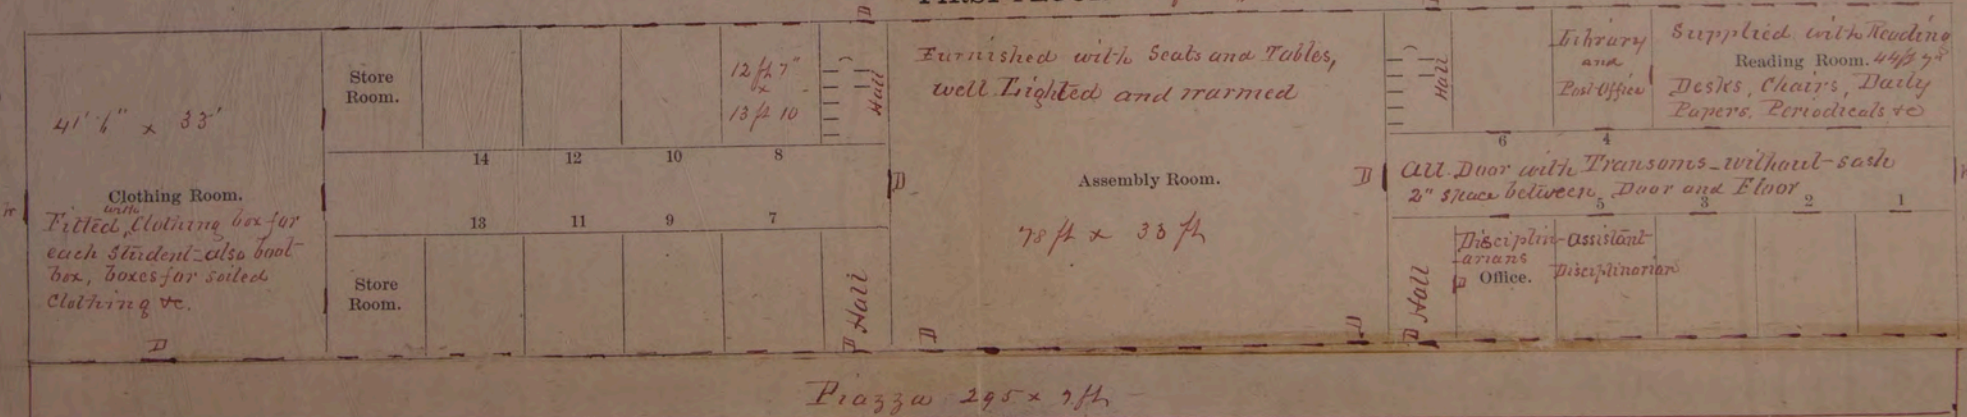 FIRST FLOOR
41' 6" x 33'
Clothing Room.
Fitted with Clothing box for
each Student - also boot
box, boxes for soiled
Clothing &c.
D
Store
Room.
14
12
10
8
12 ft 7"
x
13 ft 10
Hall
13
11
9
7
Store
Room.
D Hall
D
Furnished with Seats and Tables,
well Lighted and warmed
D
Assembly Room.
D
78 ft x 33 ft
D
D
D
Hall
6
Library
and
Post-Office
4
Supplied with Reading
Reading Room. 44 ft 7"
Desks, Chairs, Daily
Papers, Periodicals &c
All Door with Transoms - without - sash
2" space between Door and Floor
5
3
2
1
D Hall
Disciplin-
arians
D Office.
assistant
Disciplinarian
Piazza 295 x 9 ft